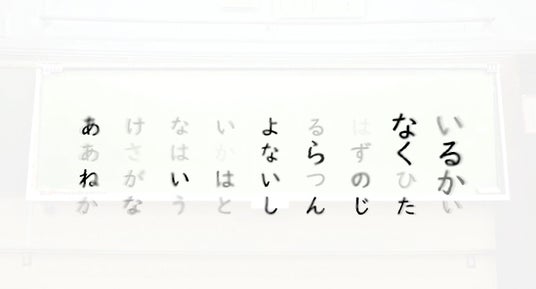 いるかい
なくひた
はずのじ
るらつん
よないし
いかはと
なはいう
けさがな
ああねか